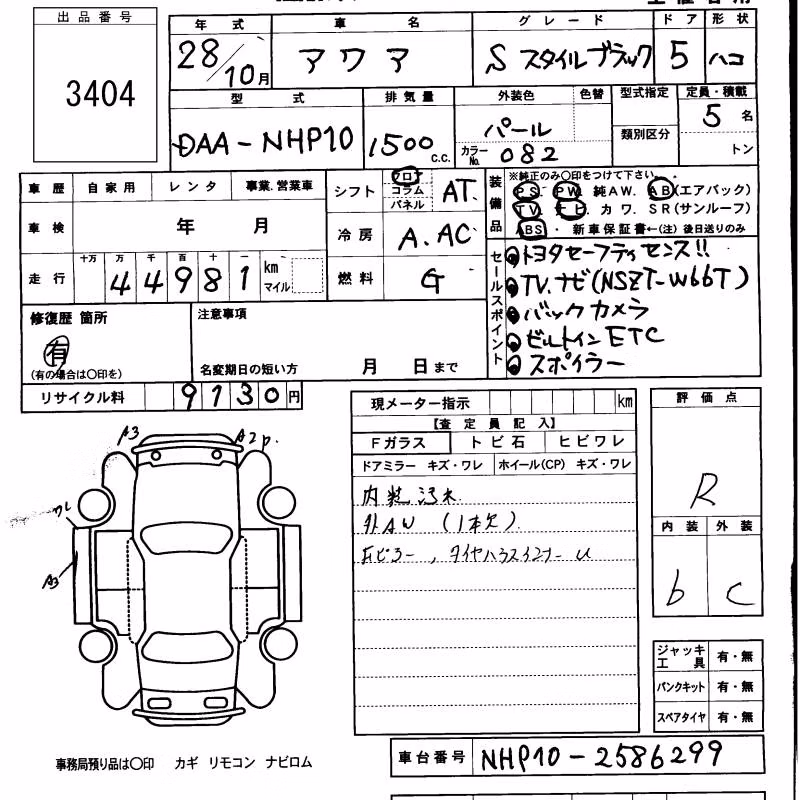 出品番号
3404
年式 車名 グレード ドア 形状
28/10月 アクア Sスタイルブラック 5 ハコ
型式 排気量 外装色 色替 型式指定 定員・積載
DAA-NHP10 1500 c.c. パール 5名
カラーNo. 082 類別区分 トン
車歴 自家用 レンタ 事業、営業車
車検 年 月
走行 十万 万 千 百 十 一 km マイル
44981
シフト フロア コラム パネル AT
冷房 A.AC
燃料 G
装備品 ※純正のみ○印をつけて下さい。
PS. PW. 純AW. AB(エアバック)
TV. ナビ. カワ. SR(サンルーフ)
ABS・新車保証書←(注)後日送りのみ
セールスポイント
●トヨタセーフティセンス!!
●TV.ナビ(NSZT-W66T)
●バックカメラ
●ビルトインETC
●スポイラー
修復歴 箇所
有
(有の場合は○印を)
注意事項
名変期日の短い方 月 日まで
リサイクル料 9130円
現メーター指示 km
【査定員記入】
Fガラス トビ石 ヒビワレ
ドアミラー キズ・ワレ ホイール(CP) キズ・ワレ
内装汚れ
外AW (1本欠)
評価点
R
内装 外装
b C
A3 A2 P.
ワレ
A3
ジャッキ工具 有・無
パンクキット 有・無
スペアタイヤ 有・無
事務局預り品は○印 カギ リモコン ナビロム
車台番号 NHP10-2586299